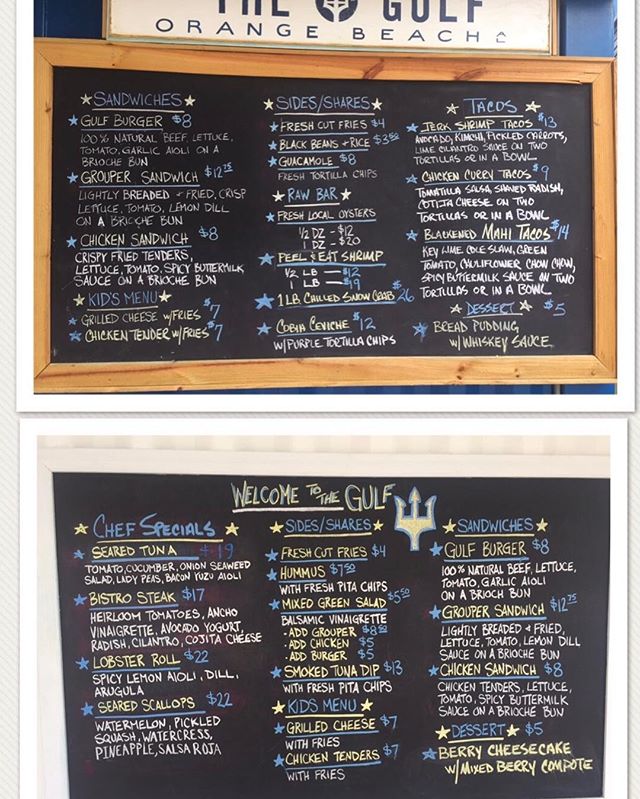 THE GULF
ORANGE BEACH
SANDWICHES
GULF BURGER $8
100% NATURAL BEEF, LETTUCE,
TOMATO, GARLIC AIOLI ON A
BRIOCHE BUN
GROUPER SANDWICH $12.75
LIGHTLY BREADED + FRIED, CRISP
LETTUCE, TOMATO, LEMON DILL
ON A BRIOCHE BUN
CHICKEN SANDWICH $8
CRISPY FRIED TENDERS,
LETTUCE, TOMATO, SPICY BUTTERMILK
SAUCE ON A BRIOCHE BUN
KID'S MENU
GRILLED CHEESE W/FRIES $7
CHICKEN TENDER W/FRIES $7
SIDES/SHARES
FRESH CUT FRIES $4
BLACK BEANS + RICE $3.50
GUACAMOLE $8
FRESH TORTILLA CHIPS
RAW BAR
FRESH LOCAL OYSTERS
1/2 DZ - $12
1 DZ - $20
PEEL & EAT SHRIMP
1/2 LB - $12
1 LB - $19
1LB CHILLED SNOW CRAB $26
COBIA CEVICHE $12
W/PURPLE TORTILLA CHIPS
TACOS
JERK SHRIMP TACOS $13
AVOCADO, KIMCHI, PICKLED CARROTS,
LIME CILANTRO SAUCE ON TWO
TORTILLAS OR IN A BOWL
CHICKEN CURRY TACOS $9
TOMATILLA SALSA, SHAVED RADISH,
COTIJA CHEESE ON TWO
TORTILLAS OR IN A BOWL
BLACKENED MAHI TACOS $14
KEY LIME COLE SLAW, GREEN
TOMATO, CAULIFLOWER CHOW CHOW,
SPICY BUTTERMILK SAUCE ON TWO
TORTILLAS OR IN A BOWL
DESSERT $5
BREAD PUDDING
W/ WHISKEY SAUCE
WELCOME TO THE GULF
CHEF SPECIALS
SEARED TUNA $19
TOMATO, CUCUMBER, ONION SEAWEED
SALAD, LADY PEAS, BACON YUZU AIOLI
BISTRO STEAK $17
HEIRLOOM TOMATOES, ANCHO
VINAIGRETTE, AVOCADO YOGURT,
RADISH, CILANTRO, COJITA CHEESE
LOBSTER ROLL $22
SPICY LEMON AIOLI, DILL,
ARUGULA
SEARED SCALLOPS $22
WATERMELON, PICKLED
SQUASH, WATERCRESS,
PINEAPPLE, SALSA ROJA
SIDES/SHARES
FRESH CUT FRIES $4
HUMMUS $7.50
WITH FRESH PITA CHIPS
MIXED GREEN SALAD $5.50
BALSAMIC VINAIGRETTE
- ADD GROUPER $8.50
- ADD CHICKEN $5
- ADD BURGER $5
SMOKED TUNA DIP $13
WITH FRESH PITA CHIPS
KIDS MENU
GRILLED CHEESE $7
WITH FRIES
CHICKEN TENDERS $7
WITH FRIES
SANDWICHES
GULF BURGER $8
100% NATURAL BEEF, LETTUCE,
TOMATO, GARLIC AIOLI
ON A BRIOCH BUN
GROUPER SANDWICH $12.75
LIGHTLY BREADED + FRIED,
LETTUCE, TOMATO, LEMON DILL
SAUCE ON A BRIOCHE BUN
CHICKEN SANDWICH $8
CHICKEN TENDERS, LETTUCE,
TOMATO, SPICY BUTTERMILK
SAUCE ON A BRIOCHE BUN
DESSERT $5
BERRY CHEESECAKE
W/MIXED BERRY COMPOTE